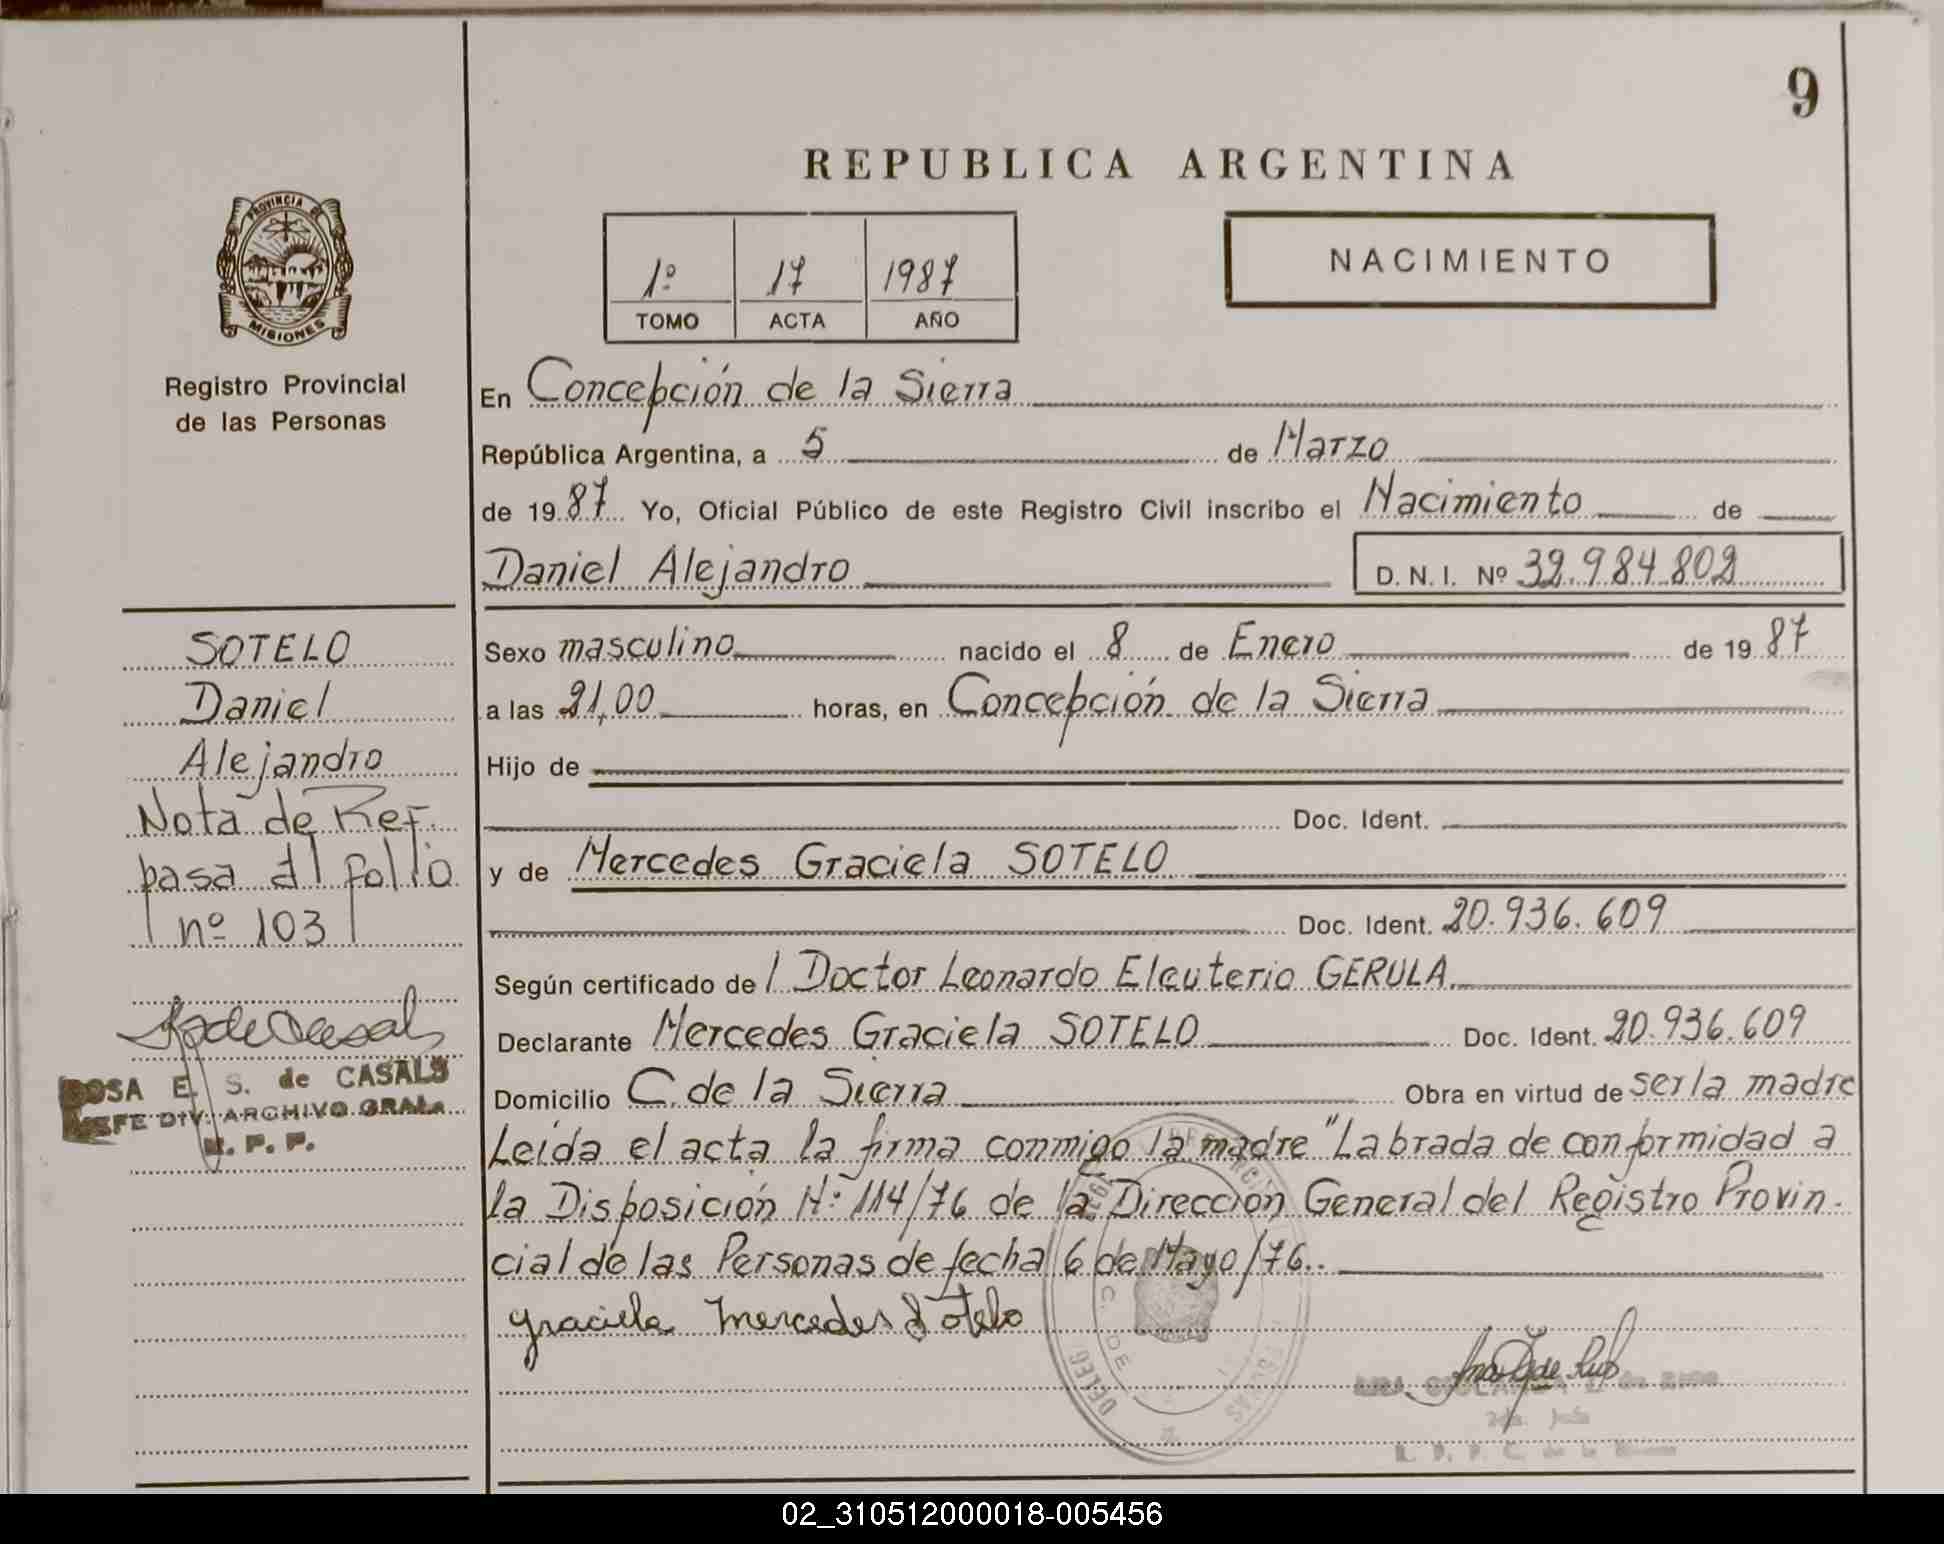 9
REPUBLICA ARGENTINA
PROVINCIA DE
MISIONES
Registro Provincial
de las Personas
1º 17 1987
TOMO ACTA AÑO
NACIMIENTO
En Concepción de la Sierra
República Argentina, a 5 de Marzo
de 1987 Yo, Oficial Público de este Registro Civil inscribo el Nacimiento de
Daniel Alejandro D.N.I. Nº 32.984.802
SOTELO
Daniel
Alejandro
Nota de Ref.
pasa al folio
nº 103
ROSA E. S. de CASALS
JEFE DIV. ARCHIVO GRAL.
R. P. P.
Sexo masculino nacido el 8 de Enero de 1987
a las 21,00 horas, en Concepción de la Sierra
Hijo de
Doc. Ident.
y de Mercedes Graciela SOTELO
Doc. Ident. 20.936.609
Según certificado de l Doctor Leonardo Eleuterio GERULA
Declarante Mercedes Graciela SOTELO Doc. Ident. 20.936.609
Domicilio C. de la Sierra Obra en virtud de ser la madre
Leída el acta la firma conmigo la madre "Labrada de conformidad a
la Disposición Nº 114/76 de la Dirección General del Registro Provin-
cial de las Personas de fecha 6 de Mayo/76.
Graciela Mercedes Sotelo
02_310512000018-005456